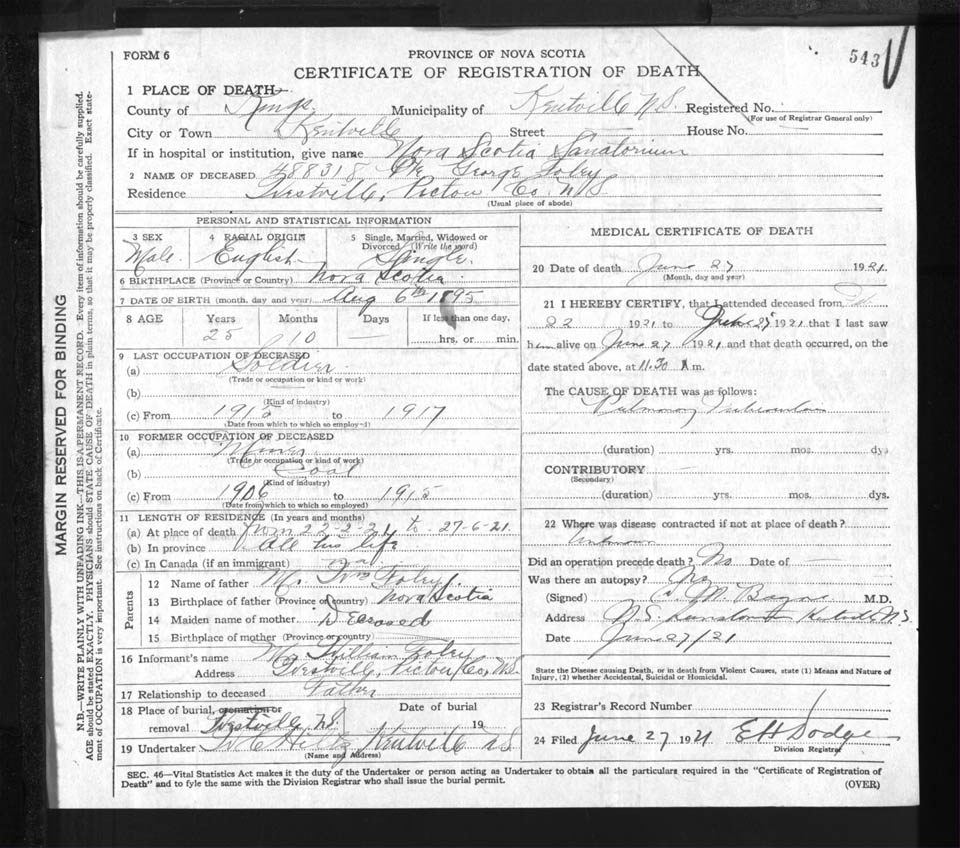 FORM 6
PROVINCE OF NOVA SCOTIA
543
CERTIFICATE OF REGISTRATION OF DEATH
1 PLACE OF DEATH
County of Kings Municipality of Kentville N.S. Registered No.
(For use of Registrar General only)
City or Town Kentville Street House No.
If in hospital or institution, give name Nova Scotia Sanatorium
2 NAME OF DECEASED 488318 Pte George Foley
Residence Westville, Pictou Co. N.S.
(Usual place of abode)
MARGIN RESERVED FOR BINDING
N.B.—WRITE PLAINLY WITH UNFADING INK—THIS IS A PERMANENT RECORD. Every item of information should be carefully supplied.
AGE should be stated EXACTLY. PHYSICIANS should STATE CAUSE OF DEATH in plain terms, so that it may be properly classified. Exact state-
ment of OCCUPATION is very important. See instructions on back of Certificate.
PERSONAL AND STATISTICAL INFORMATION
3 SEX 4 RACIAL ORIGIN 5 Single, Married, Widowed or
Divorced (Write the word)
Male. English Single
6 BIRTHPLACE (Province or Country) Nova Scotia
7 DATE OF BIRTH (month, day and year) Aug 6th 1895
8 AGE Years Months Days If less than one day,
25 10 — hrs. or min.
9 LAST OCCUPATION OF DECEASED
(a) Soldier
(Trade or occupation or kind or work)
(b)
(Kind of industry)
(c) From 1915 to 1917
(Date from which to which so employed)
10 FORMER OCCUPATION OF DECEASED
(a) Miner
(Trade or occupation or kind of work)
(b) Coal
(Kind of industry)
(c) From 1906 to 1915
(Date from which to which so employed)
11 LENGTH OF RESIDENCE (In years and months)
(a) At place of death from 22-2-21 to 27-6-21
(b) In province All his life
(c) In Canada (if an immigrant)
Parents
12 Name of father Mr. Wm Foley
13 Birthplace of father (Province or country) Nova Scotia
14 Maiden name of mother Deceased
15 Birthplace of mother (Province or country)
16 Informant's name Mr William Foley
Address Westville, Pictou Co, N.S.
17 Relationship to deceased Father
18 Place of burial, cremation or Date of burial
removal Westville, N.S. 19
19 Undertaker Kentville N.S.
(Name and Address)
MEDICAL CERTIFICATE OF DEATH
20 Date of death June 27 1921.
(Month, day and year)
21 I HEREBY CERTIFY, that I attended deceased from
22 1921 to June 27 1921 that I last saw
him alive on June 27 1921 and that death occurred, on the
date stated above, at 11.30 A m.
The CAUSE OF DEATH was as follows:
Pulmonary Tuberculosis
(duration) yrs. mos. dys
CONTRIBUTORY
(Secondary)
(duration) yrs. mos. dys.
22 Where was disease contracted if not at place of death?
Unknown
Did an operation precede death? No Date of —
Was there an autopsy? No
(Signed) M.D.
Address N.S. Sanatorium Kentville N.S.
Date June 27/21
State the Disease causing Death, or in death from Violent Causes, state (1) Means and Nature of
Injury, (2) whether Accidental, Suicidal or Homicidal.
23 Registrar's Record Number
24 Filed June 27 1921 E H Dodge
Division Registrar
SEC. 46—Vital Statistics Act makes it the duty of the Undertaker or person acting as Undertaker to obtain all the particulars required in the "Certificate of Registration of
Death" and to fyle the same with the Division Registrar who shall issue the burial permit.
(OVER)